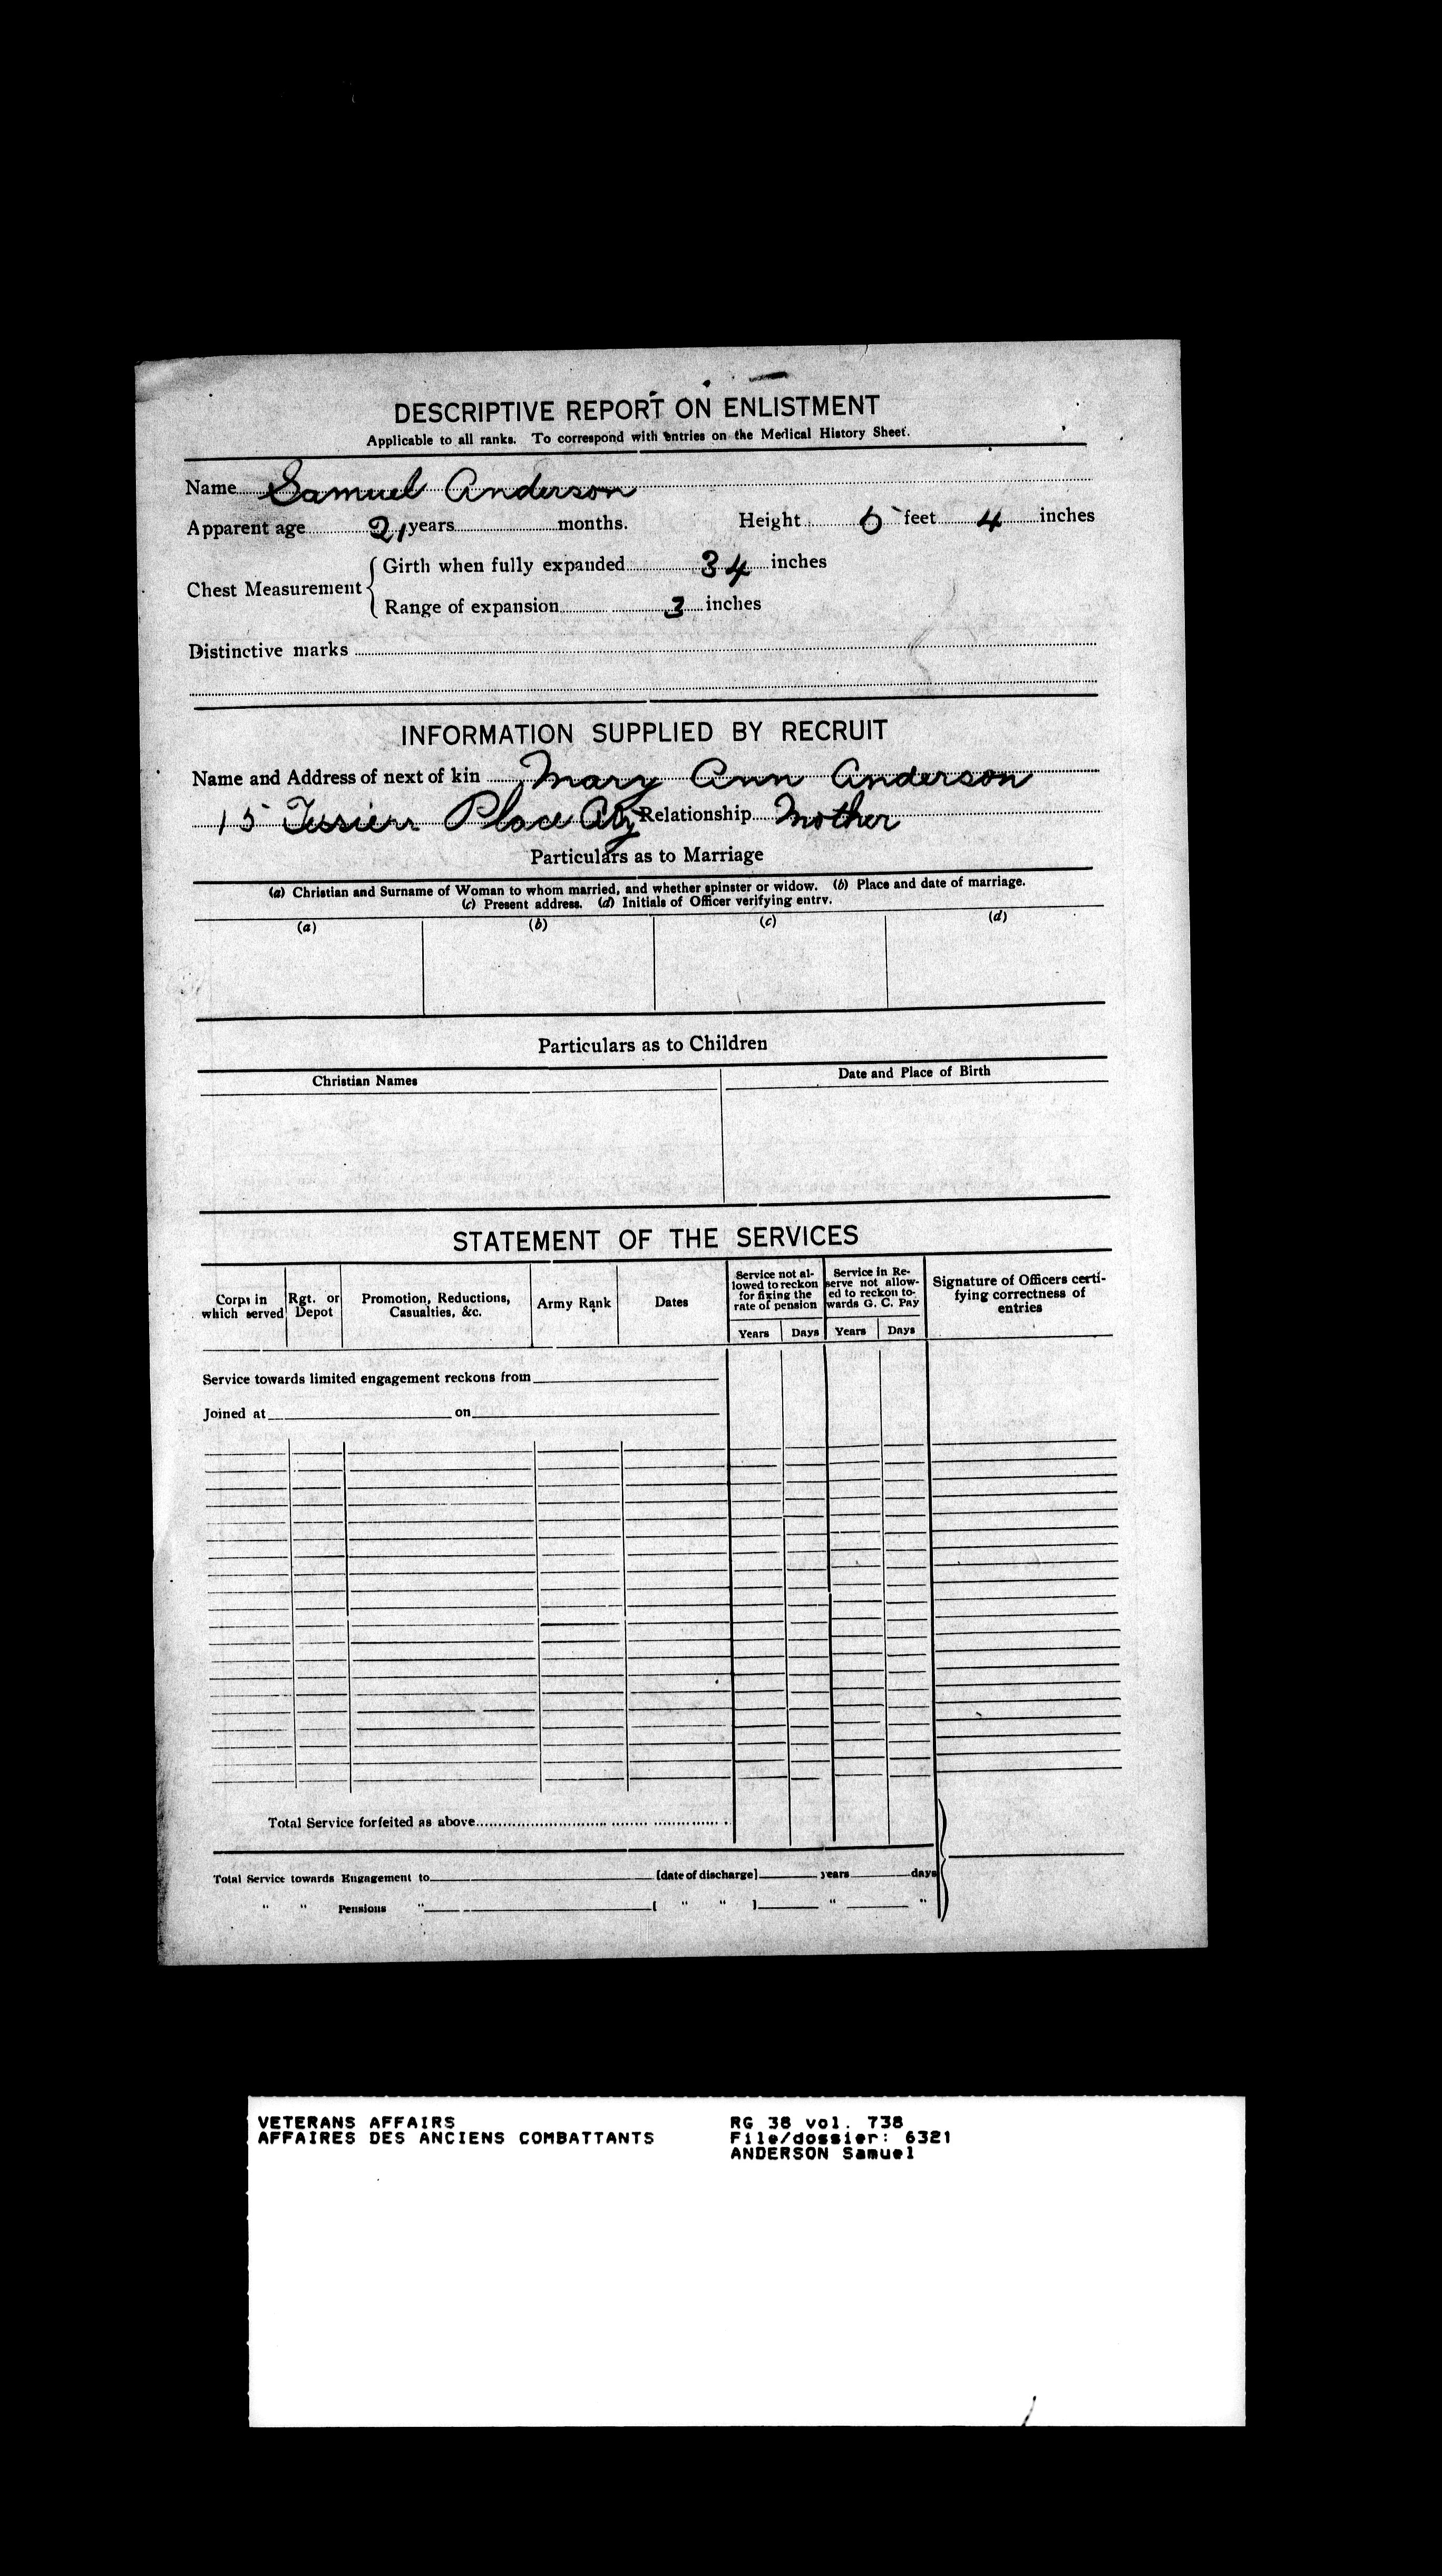 DESCRIPTIVE REPORT ON ENLISTMENT
Applicable to all ranks. To correspond with entries on the Medical History Sheet.
Name Samuel Anderson
Apparent age 21 years months. Height 5 feet 4 inches
Chest Measurement { Girth when fully expanded 34 inches
Range of expansion 3 inches
Distinctive marks
INFORMATION SUPPLIED BY RECRUIT
Name and Address of next of kin Mary Ann Anderson
15 Place Relationship Mother
Particulars as to Marriage
(a) Christian and Surname of Woman to whom married, and whether spinster or widow. (b) Place and date of marriage.
(c) Present address. (d) Initials of Officer verifying entry.
(a) (b) (c) (d)
Particulars as to Children
Christian Names Date and Place of Birth
STATEMENT OF THE SERVICES
Corps in which served Rgt. or Depot Promotion, Reductions, Casualties, &c. Army Rank Dates Service not allowed to reckon for fixing the rate of pension Service in Reserve not allowed to reckon towards G. C. Pay Signature of Officers certifying correctness of entries
Years Days Years Days
Service towards limited engagement reckons from
Joined at on
Total Service forfeited as above
Total Service towards Engagement to [date of discharge] years days
" " Pensions " [ " " ] " "
VETERANS AFFAIRS RG 38 vol. 738
AFFAIRES DES ANCIENS COMBATTANTS File/dossier: 6321
ANDERSON Samuel